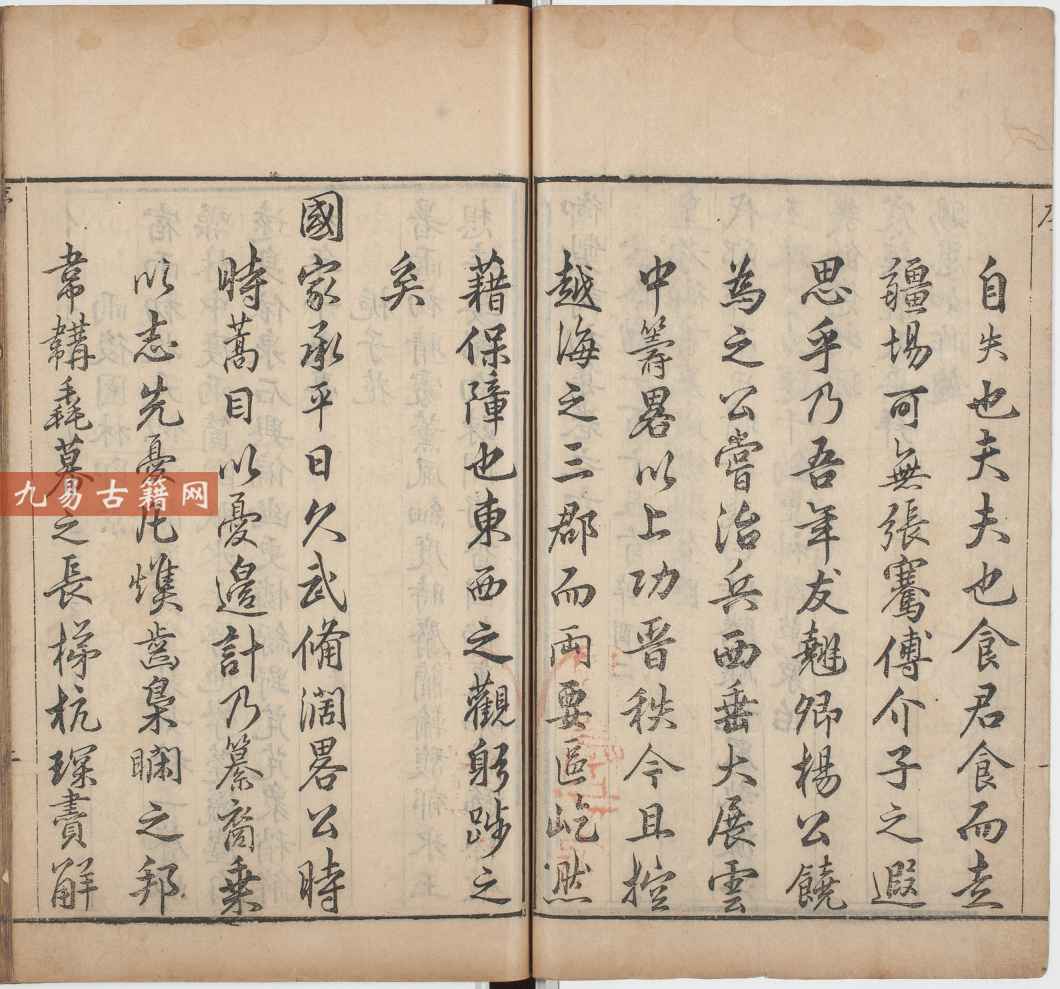 自失也夫夫也食君食而走
疆場可無張騫傅介子之遐
思乎乃吾年友翹卿楊公饒
為之公嘗治兵西垂大展雲
中籌畧以上功晋秩今且控
越海之三郡而兩要區屹然
藉保障也東西之觀躬踄之
矣
國家承平日久武備濶畧公時
時蒿目以憂邉計乃纂裔乗
以志先憂凡爑齒梟瞷之邦
韋韝毳幕之長梯杭琛賮解
九易古籍网